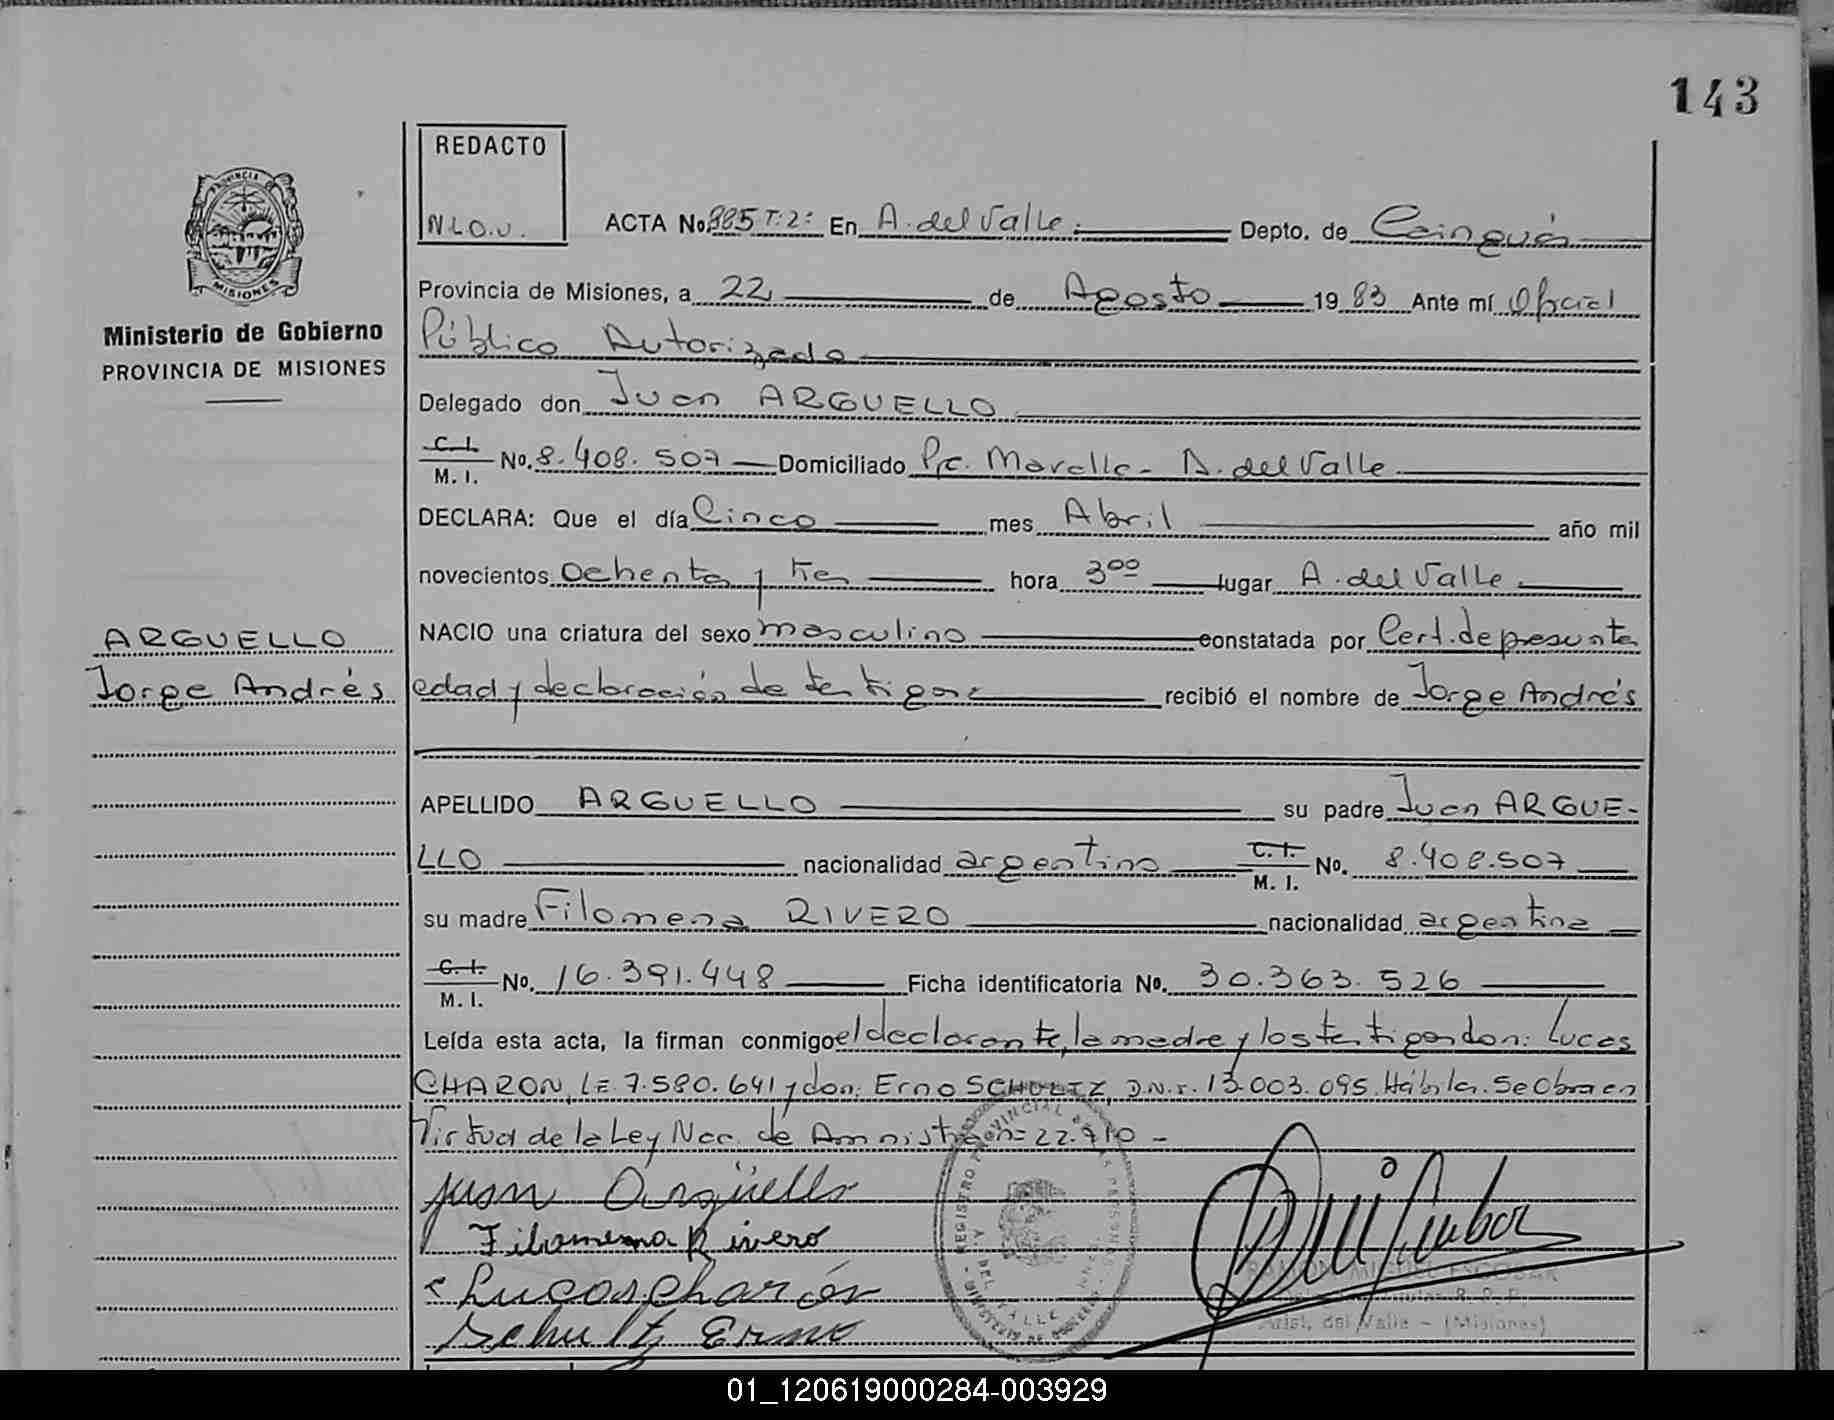 143
REDACTO
N.L.O.V.
PROVINCIA DE
MISIONES
Ministerio de Gobierno
PROVINCIA DE MISIONES
ACTA No. 885 T: 2: En A. del Valle.- Depto. de Cainguás
Provincia de Misiones, a 22 de Agosto 1983 Ante mí Oficial
Público Autorizado
Delegado don Juan ARGUELLO
C. I. / M. I. No. 8.408.507 Domiciliado Pje. Marolla- A. del Valle
DECLARA: Que el día Cinco mes Abril año mil
novecientos ochenta y tres hora 3⁰⁰ lugar A. del Valle.
NACIO una criatura del sexo masculino constatada por Cert. de presunta
edad y declaración de testigos: recibió el nombre de Jorge Andrés
ARGUELLO
Jorge Andrés
APELLIDO ARGUELLO su padre Juan ARGUE-
LLO nacionalidad argentino C. I. / M. I. No. 8.408.507
su madre Filomena RIVERO nacionalidad argentina
C. I. / M. I. No. 16.391.448 Ficha identificatoria No. 30.363.526
Leída esta acta, la firman conmigo el declarante, la madre y los testigos don: Lucas
CHARON, LE. 7.580.641 y don: Erno SCHULTZ, D.N.I. 13.003.095. Hábiles. Se Obra en
Virtud de la Ley Nac. de Amnistía n= 22.710 -
Juan Argüello
Filomena Rivero
Lucas Charón
Schultz Erno
REGISTRO PROVINCIAL DE LAS PERSONAS
A. DEL VALLE
MINISTERIO DE GOBIERNO
RAMON MIGUEL ESCOBAR
Arist. del Valle - (Misiones)
01_120619000284-003929